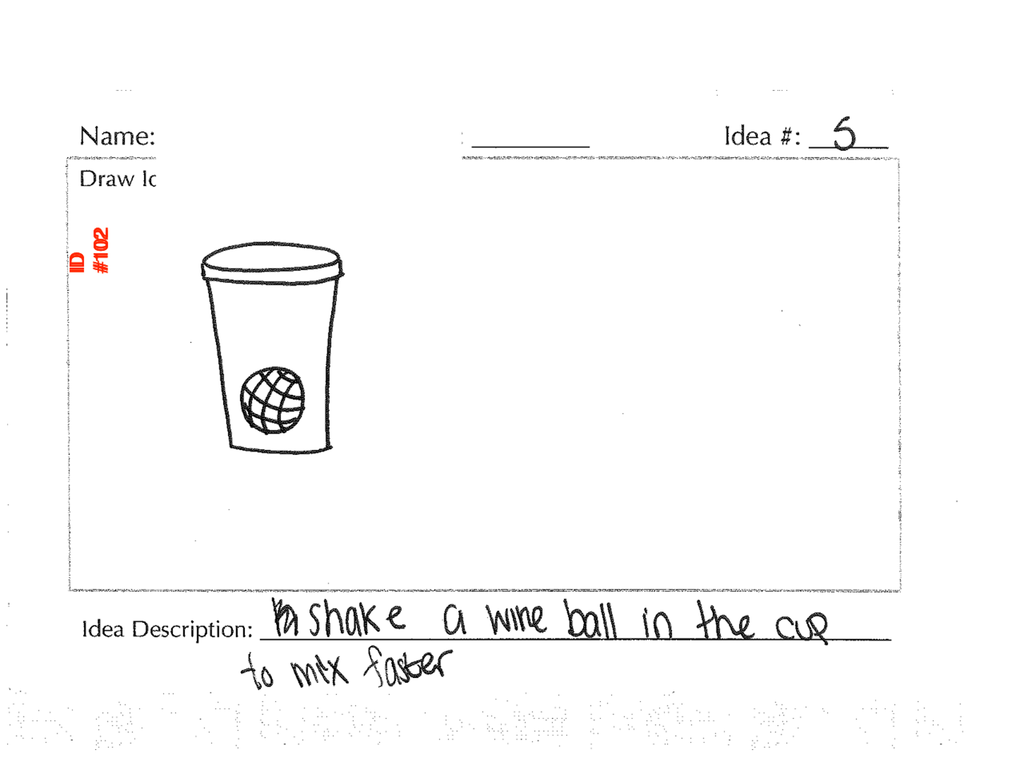 Name: Idea #: 5
Draw
ID
#102
Idea Description: shake a wire ball in the cup
to mix faster